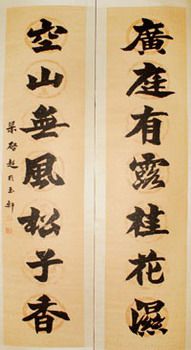 廣庭有露桂花濕
空山無風松子香
梁啓超